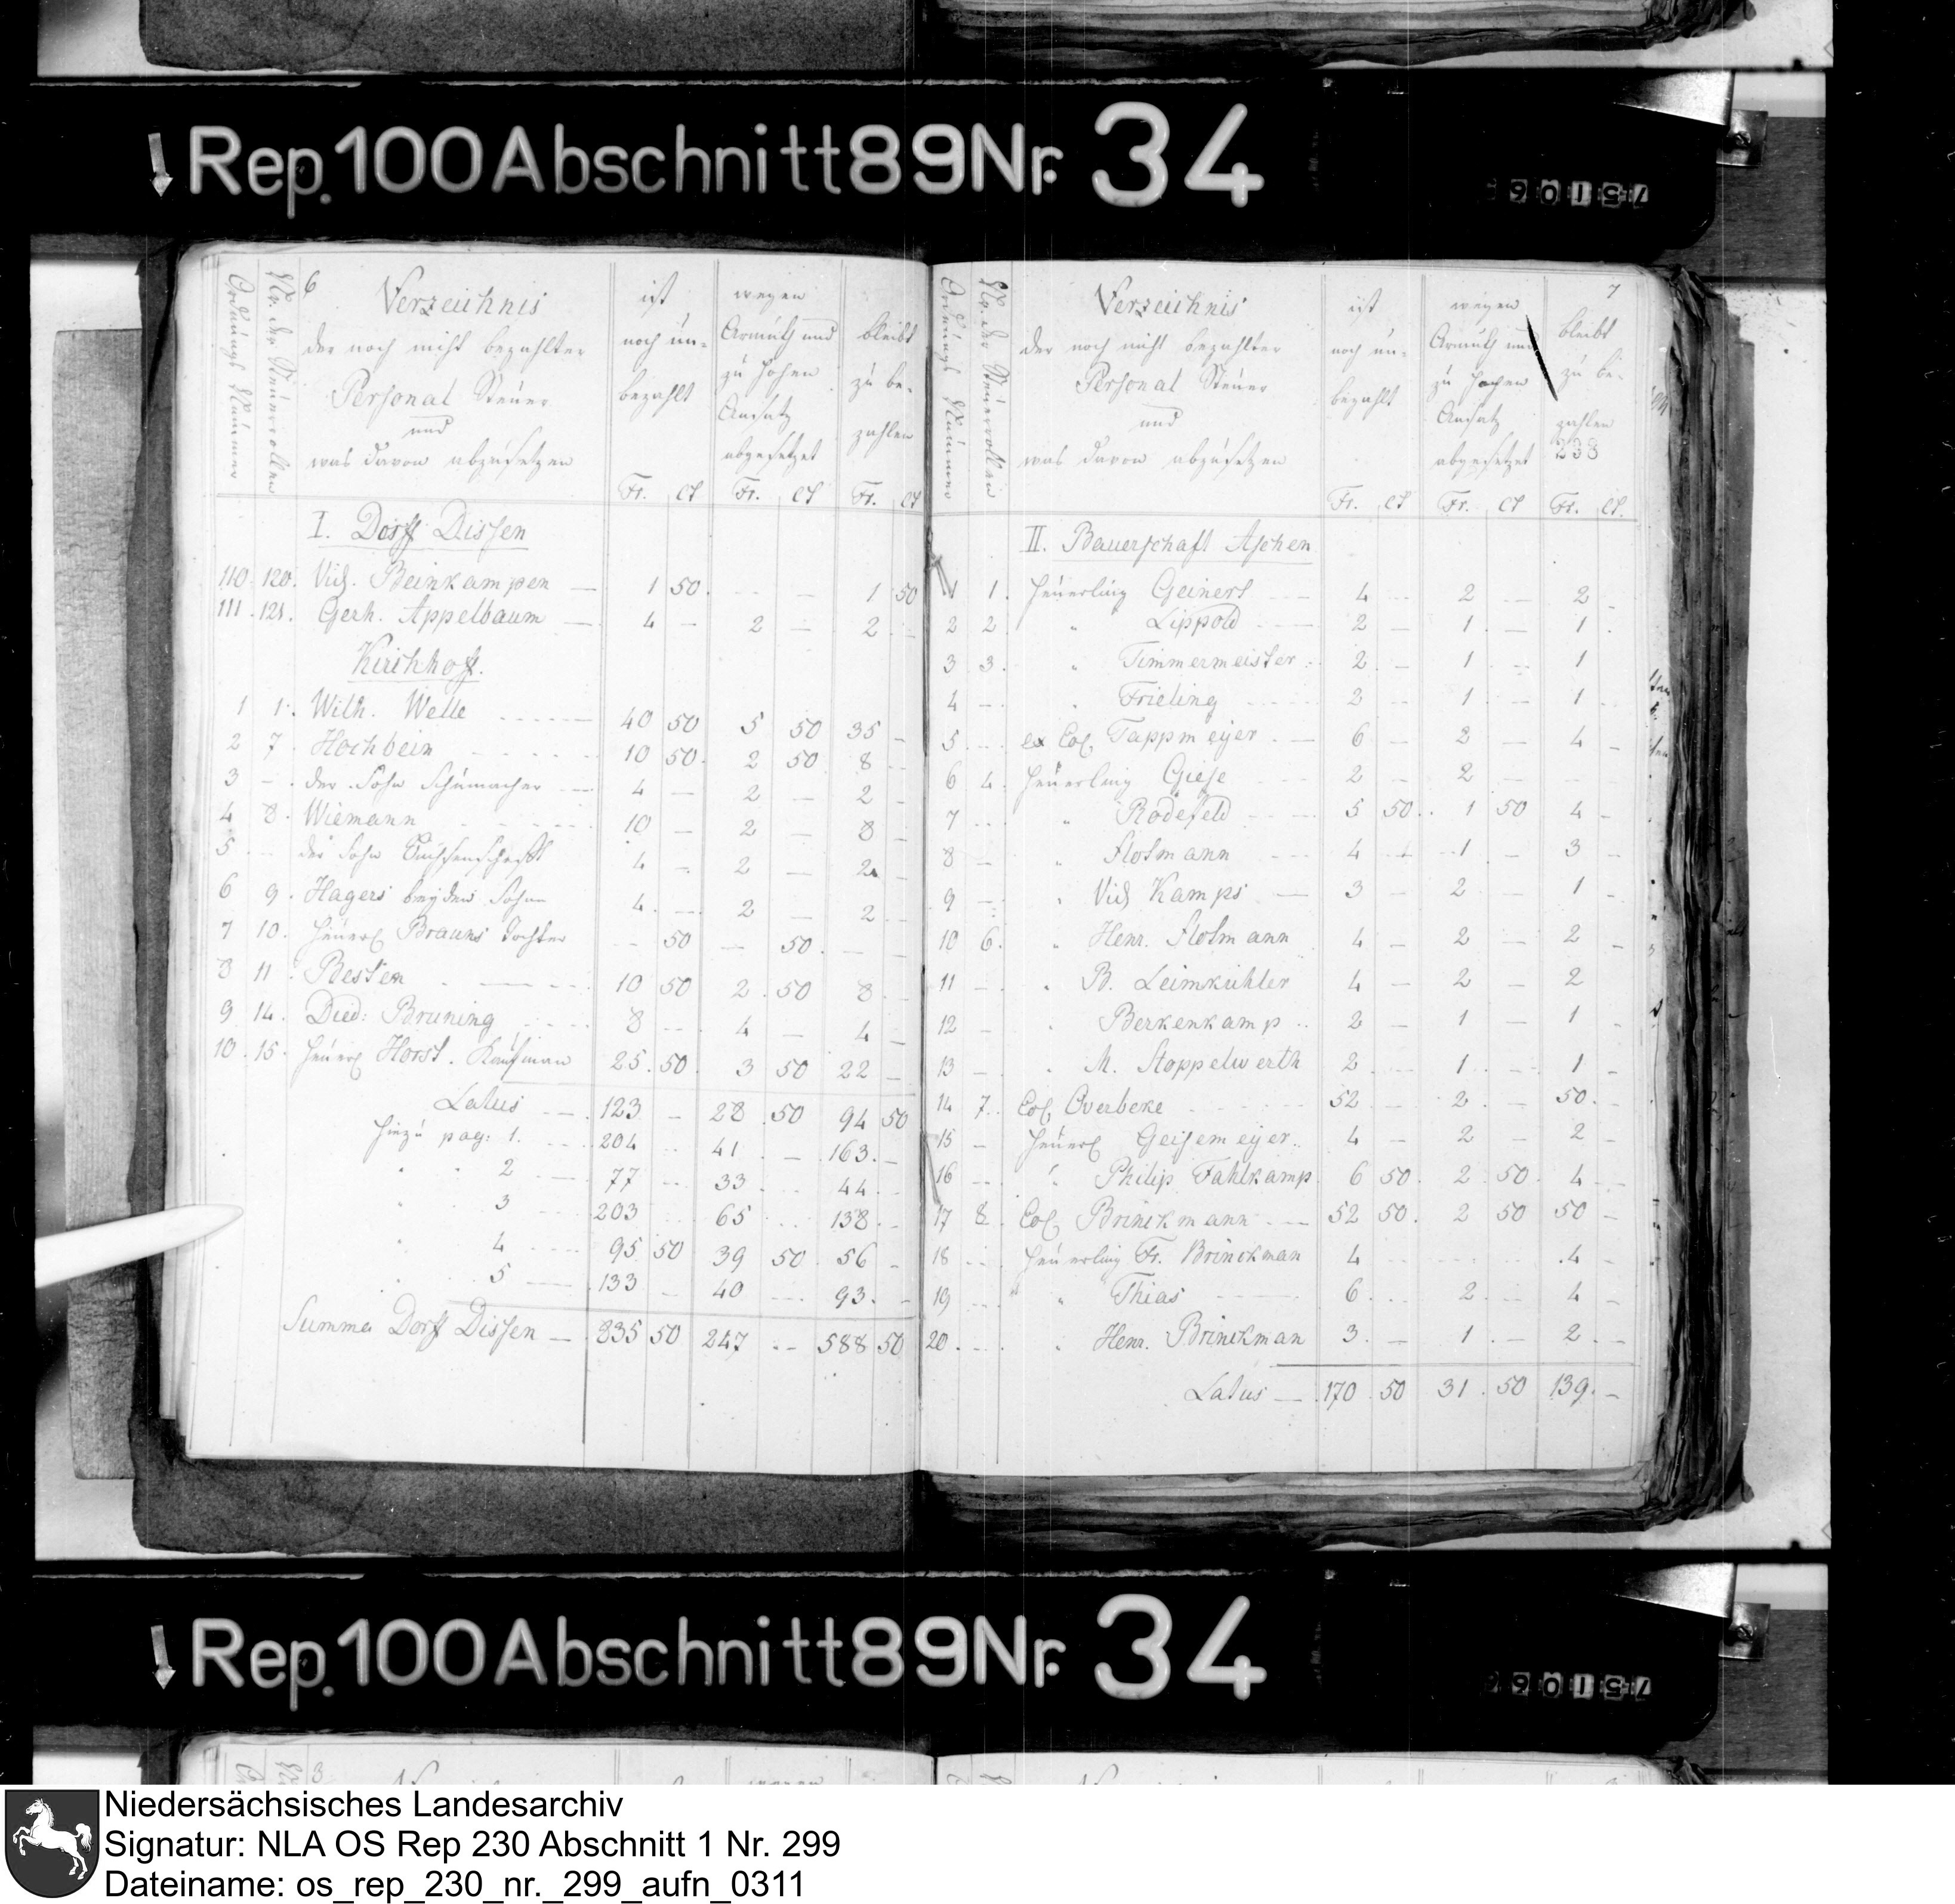 Rep. 100 Abschnitt 89 Nr. 34
6
Ordnungs Nummer
Nr. der Steuerrollen
Verzeichnis
der noch nicht bezahlten
Personal Steuer
und
was davon abzusetzen
ist
noch un-
bezahlt
wegen
Armuth und
zu hohen
Ansatz
abgesetzt
bleibt
zu be-
zahlen
Fr. Ct Fr. Ct Fr. Ct
I. Dorff Dissen
110. 120. Vid. Beinkampen — 1 50. - - — 1 50
111. 121. Gerh. Appelbaum — 4 — 2 — 2 -
Kirchhoff.
1 1. Wilh. Welle 40 50 5 50 35 -
2 7. Hochbein 10 50. 2 50 8 -
3 — . der Sohn Schumacher 4 — 2 — 2 -
4 8. Wiemann 10 — 2 — 8 -
5 der Sohn 4 — 2 — 2 -
6 9. Hagers beyden Sohne 4. — 2 — 2 -
7 10. Heuerl Brauns Tochter — 50 — 50. —
8 11. Besten 10 50 2. 50 8 -
9 14. Died: Bruning 8 - 4 — 4 -
10. 15. Heuerl Horst. Kaufman 25. 50. 3 50 22 -
Latus — 123 — 28. 50 94 50
hinzu pag: 1. 204 41 — 163. -
" 2 77 33 44. -
" 3 203 65 138. -
" 4 95 50 39 50. 56 -
" 5 133 — 40 93. -
Summa Dorff Dissen — 835 50 247 - - 588 50
7
Ordnungs Nummer
Nr. der Steuerrollen
Verzeichnis
der noch nicht bezahlten
Personal Steuer
und
was davon abzusetzen
ist
noch un-
bezahlt
wegen
Armuth und
zu hohen
Ansatz
abgesetzt
bleibt
zu be-
zahlen
238
Fr. Ct Fr. Ct Fr. Ct.
II. Bauerschaft Aschen
1 1. Heuerling Geinert 4 - 2 — 2 -
2 2. " Lippold 2 — 1. — 1.
3 3. " Timmermeister 2. — 1 - 1
4 — " Frieling 2 — 1 — 1
5 ex Col. Tappmeyer 6 — 2 — 4 -
6 4. Heuerling Giese 2 — 2 —
7 " Rodefeld 5 50. 1 50 4 -
8 — " Flotmann 4 - 1. — 3 -
9 — " Vid Kamps — 3 — 2 — 1 -
10 6. " Henr. Flotmann 4 — 2 — 2 -
11 — " B. Leimkühler 4 — 2 — 2
12 — " Berkenkamp 2 — 1 — 1 -
13 — " M. Stoppelwerth 2 1. 1 -
14 7. Col. Overbeke 52 2. — 50. -
15 — Heuerl Geisemeyer. 4 — 2 — 2 -
16 " Philip Fahlkamp. 6 50. 2 50. 4 -
17 8. Col. Brinckmann 52 50. 2 50 50 -
18 Heuerling Fr. Brinckman 4 4 -
19 " Thias 6. 2. 4 -
20. " Henr. Brinckman 3. — 1. — 2. -
Latus — 170 50 31. 50 139. -
Rep. 100 Abschnitt 89 Nr. 34
Niedersächsisches Landesarchiv
Signatur: NLA OS Rep 230 Abschnitt 1 Nr. 299
Dateiname: os_rep_230_nr._299_aufn_0311